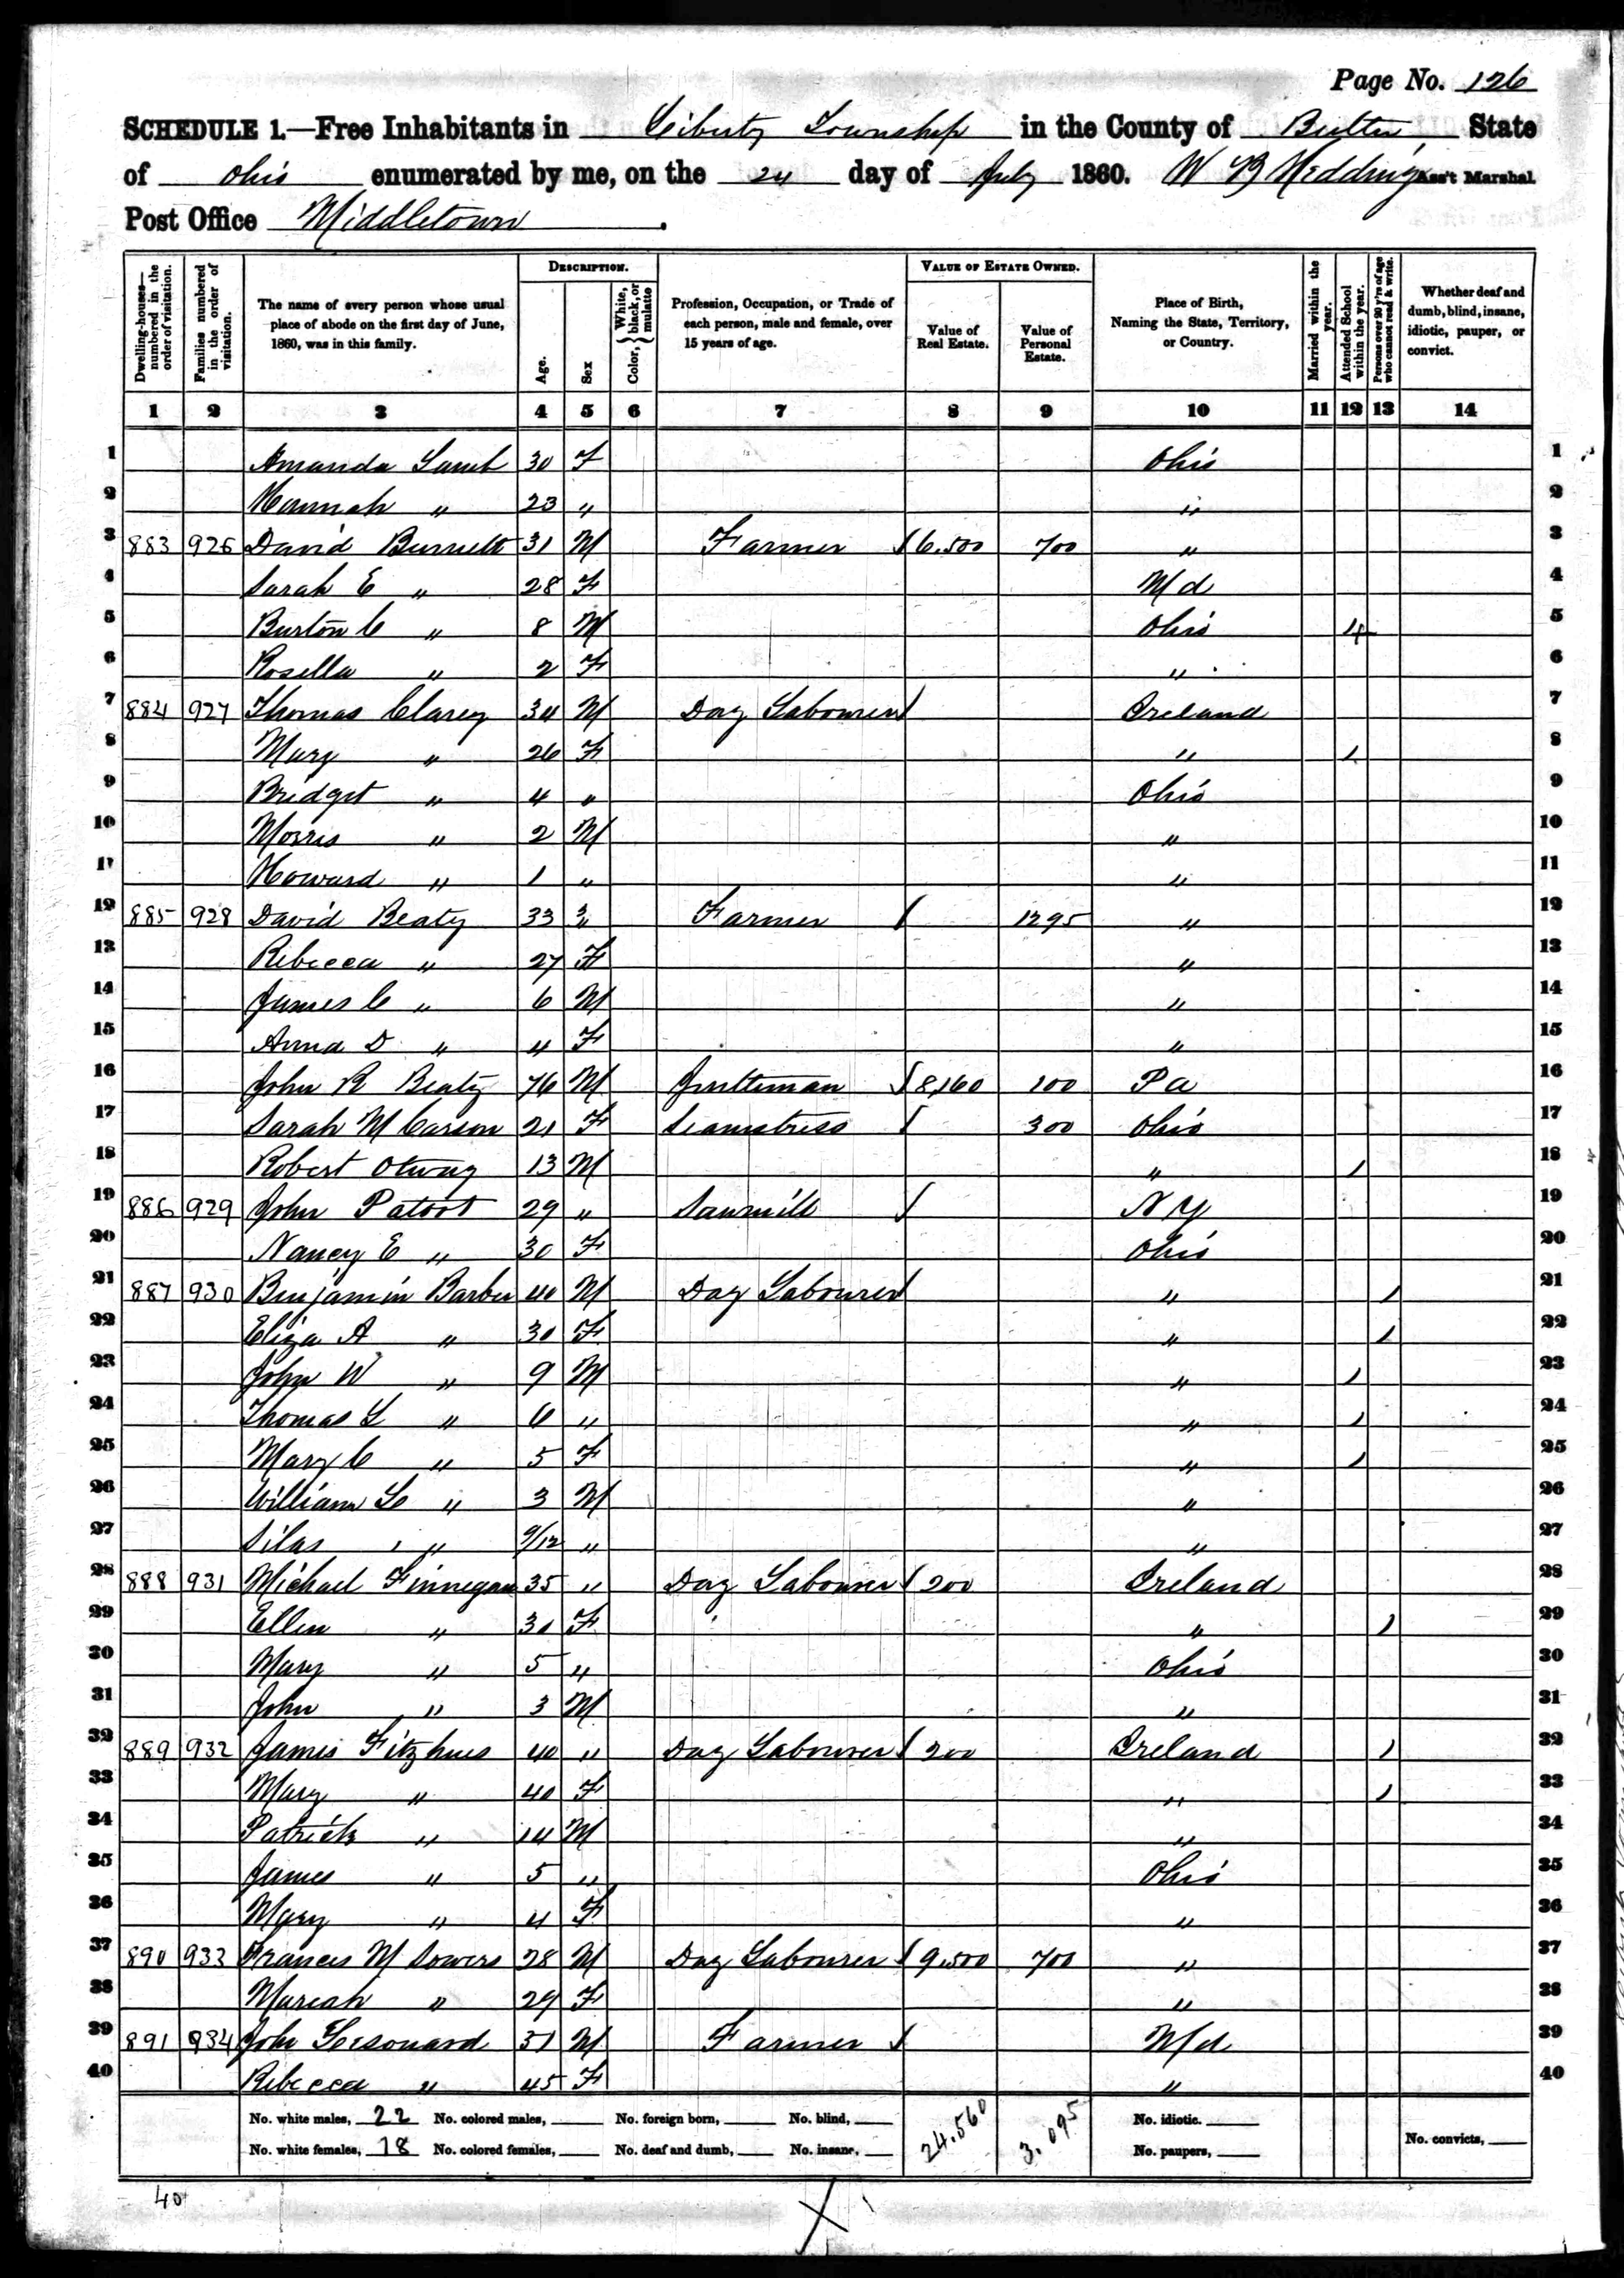 Page No. 126
SCHEDULE 1.—Free Inhabitants in Liberty Township in the County of Butler State
of Ohio enumerated by me, on the 24 day of July 1860. W B Nedding Ass't Marshal.
Post Office Middletown.
Dwelling-houses—numbered in the order of visitation. Families numbered in the order of visitation. The name of every person whose usual place of abode on the first day of June, 1860, was in this family. DESCRIPTION. Age. Sex Color, { White, black, or mulatto Profession, Occupation, or Trade of each person, male and female, over 15 years of age. VALUE OF ESTATE OWNED. Value of Real Estate. Value of Personal Estate. Place of Birth, Naming the State, Territory, or Country. Married within the year. Attended School within the year. Persons over 20 y'rs of age who cannot read & write. Whether deaf and dumb, blind, insane, idiotic, pauper, or convict.
1 2 3 4 5 6 7 8 9 10 11 12 13 14
1 Amanda Lamb 30 F Ohio 1
2 Hannah " 23 " " 2
3 883 926 David Burnett 31 M Farmer / 6.500 700 " 3
4 Sarah E " 28 F Md 4
5 Burton C " 8 M Ohio 5
6 Rosella " 2 F " 6
7 884 927 Thomas Clarey 34 M Day Labourer / Ireland 7
8 Mary " 26 F " / 8
9 Bridget " 4 " Ohio 9
10 Morris " 2 M " 10
11 Howard " 1 " " 11
12 885 928 David Beaty 33 " Farmer / 1295 " 12
13 Rebecca " 27 F " 13
14 James C " 6 M " 14
15 Anna D " 4 F " 15
16 John R Beaty 76 M Gentleman / 8,160 100 Pa 16
17 Sarah M Carson 21 F Seamstress / 300 Ohio 17
18 Robert Otway 13 M " / 18
19 886 929 John Patoot 29 " Sawmill / N Y 19
20 Nancy E " 30 F Ohio 20
21 887 930 Benjamin Barber 40 M Day Labourer / " / 21
22 Eliza A " 30 F " / 22
23 John W " 9 M " / 23
24 Thomas L " 6 " " / 24
25 Mary C " 5 F " / 25
26 William " 3 M " 26
27 Silas " 9/12 " " 27
28 888 931 Michael Finnegan 35 " Day Labourer / 200 Ireland 28
29 Ellen " 30 F " / 29
30 Mary " 5 " Ohio 30
31 John " 3 M " 31
32 889 932 James Fitzhues 40 " Day Labourer / 200 Ireland / 32
33 Mary " 40 F " / 33
34 Patrick " 14 M " 34
35 James " 5 " Ohio 35
36 Mary " 4 F " 36
37 890 933 Frances M Sowers 28 M Day Labourer / 9.500 700 " 37
38 Mariah " 29 F " 38
39 891 934 John 51 M Farmer / Md 39
40 Rebecca " 45 F " 40
No. white males, 22 No. colored males, No. foreign born, No. blind, 24.560 3.095 No. idiotic.
No. white females, 18 No. colored females, No. deaf and dumb, No. insane, No. paupers, No. convicts,
40
X